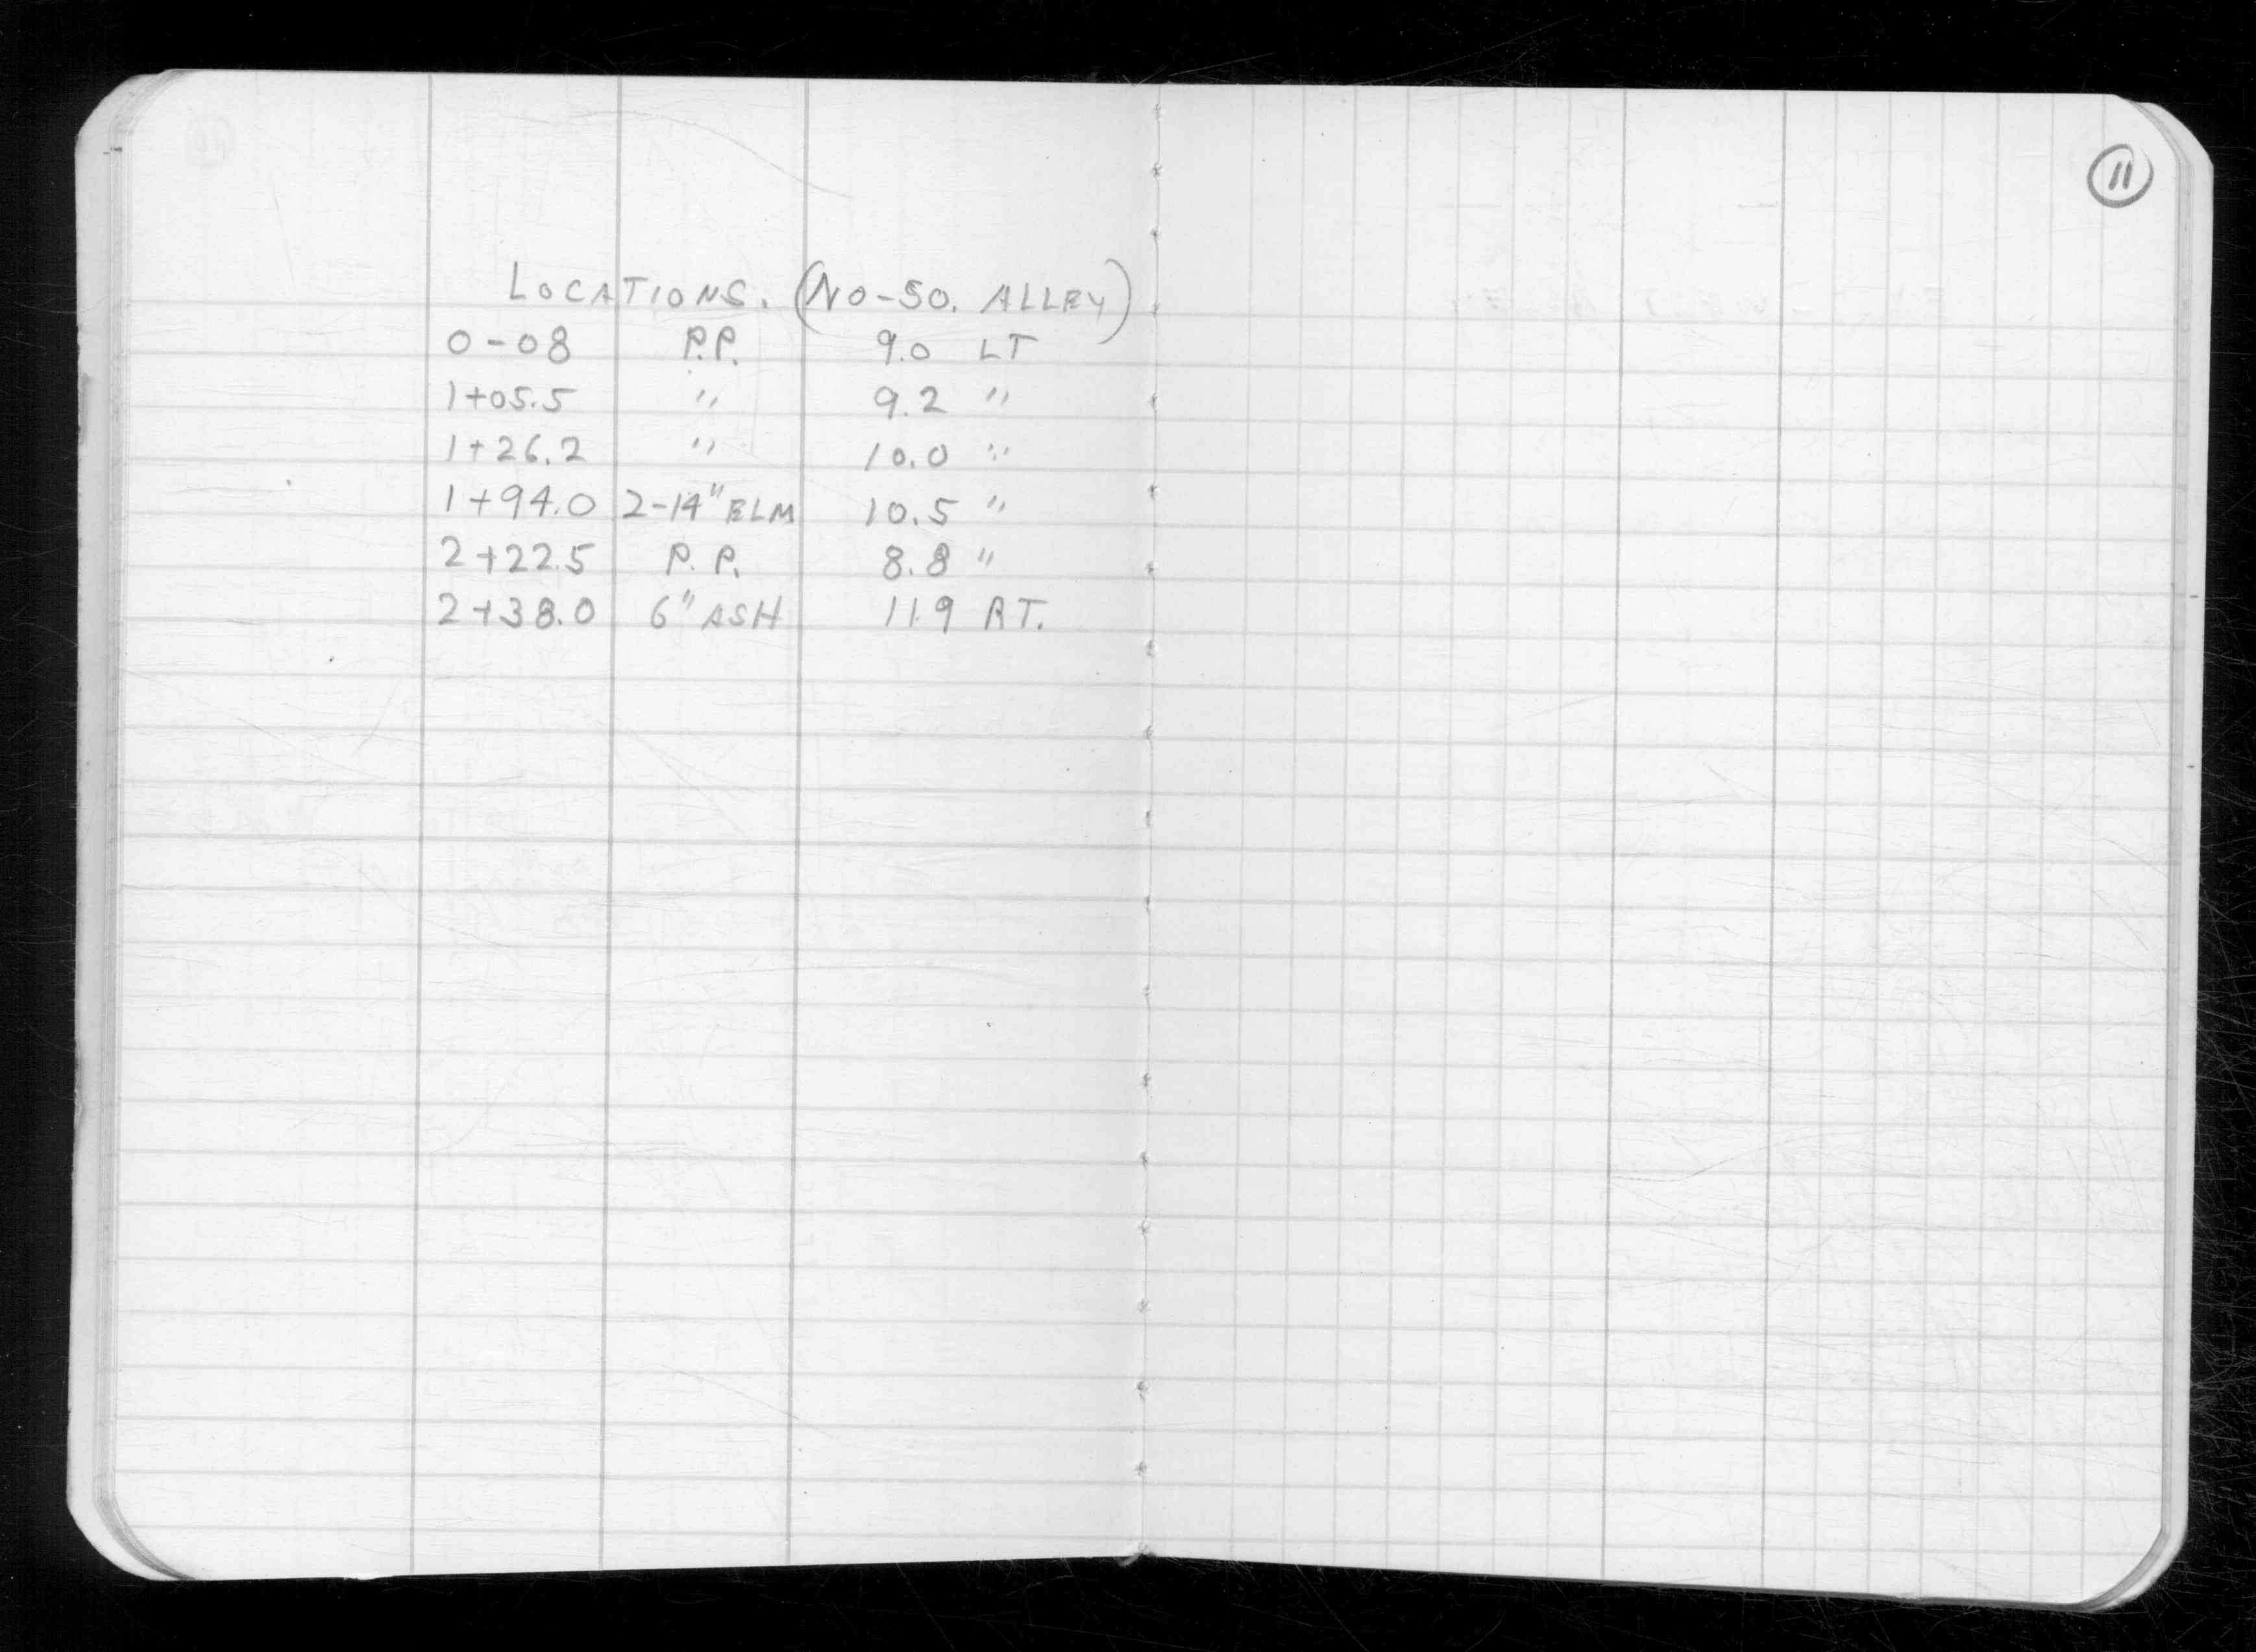 11
LOCATIONS. (NO-SO. ALLEY)
0-08 P.P. 9.0 LT
1+05.5 " 9.2 "
1+26.2 " 10.0 "
1+94.0 2-14" ELM 10.5 "
2+22.5 P.P. 8.8 "
2+38.0 6" ASH 11.9 RT.